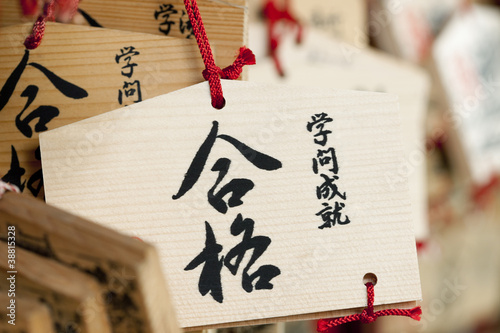 学問成就
合格
学問
合
学問
38815328